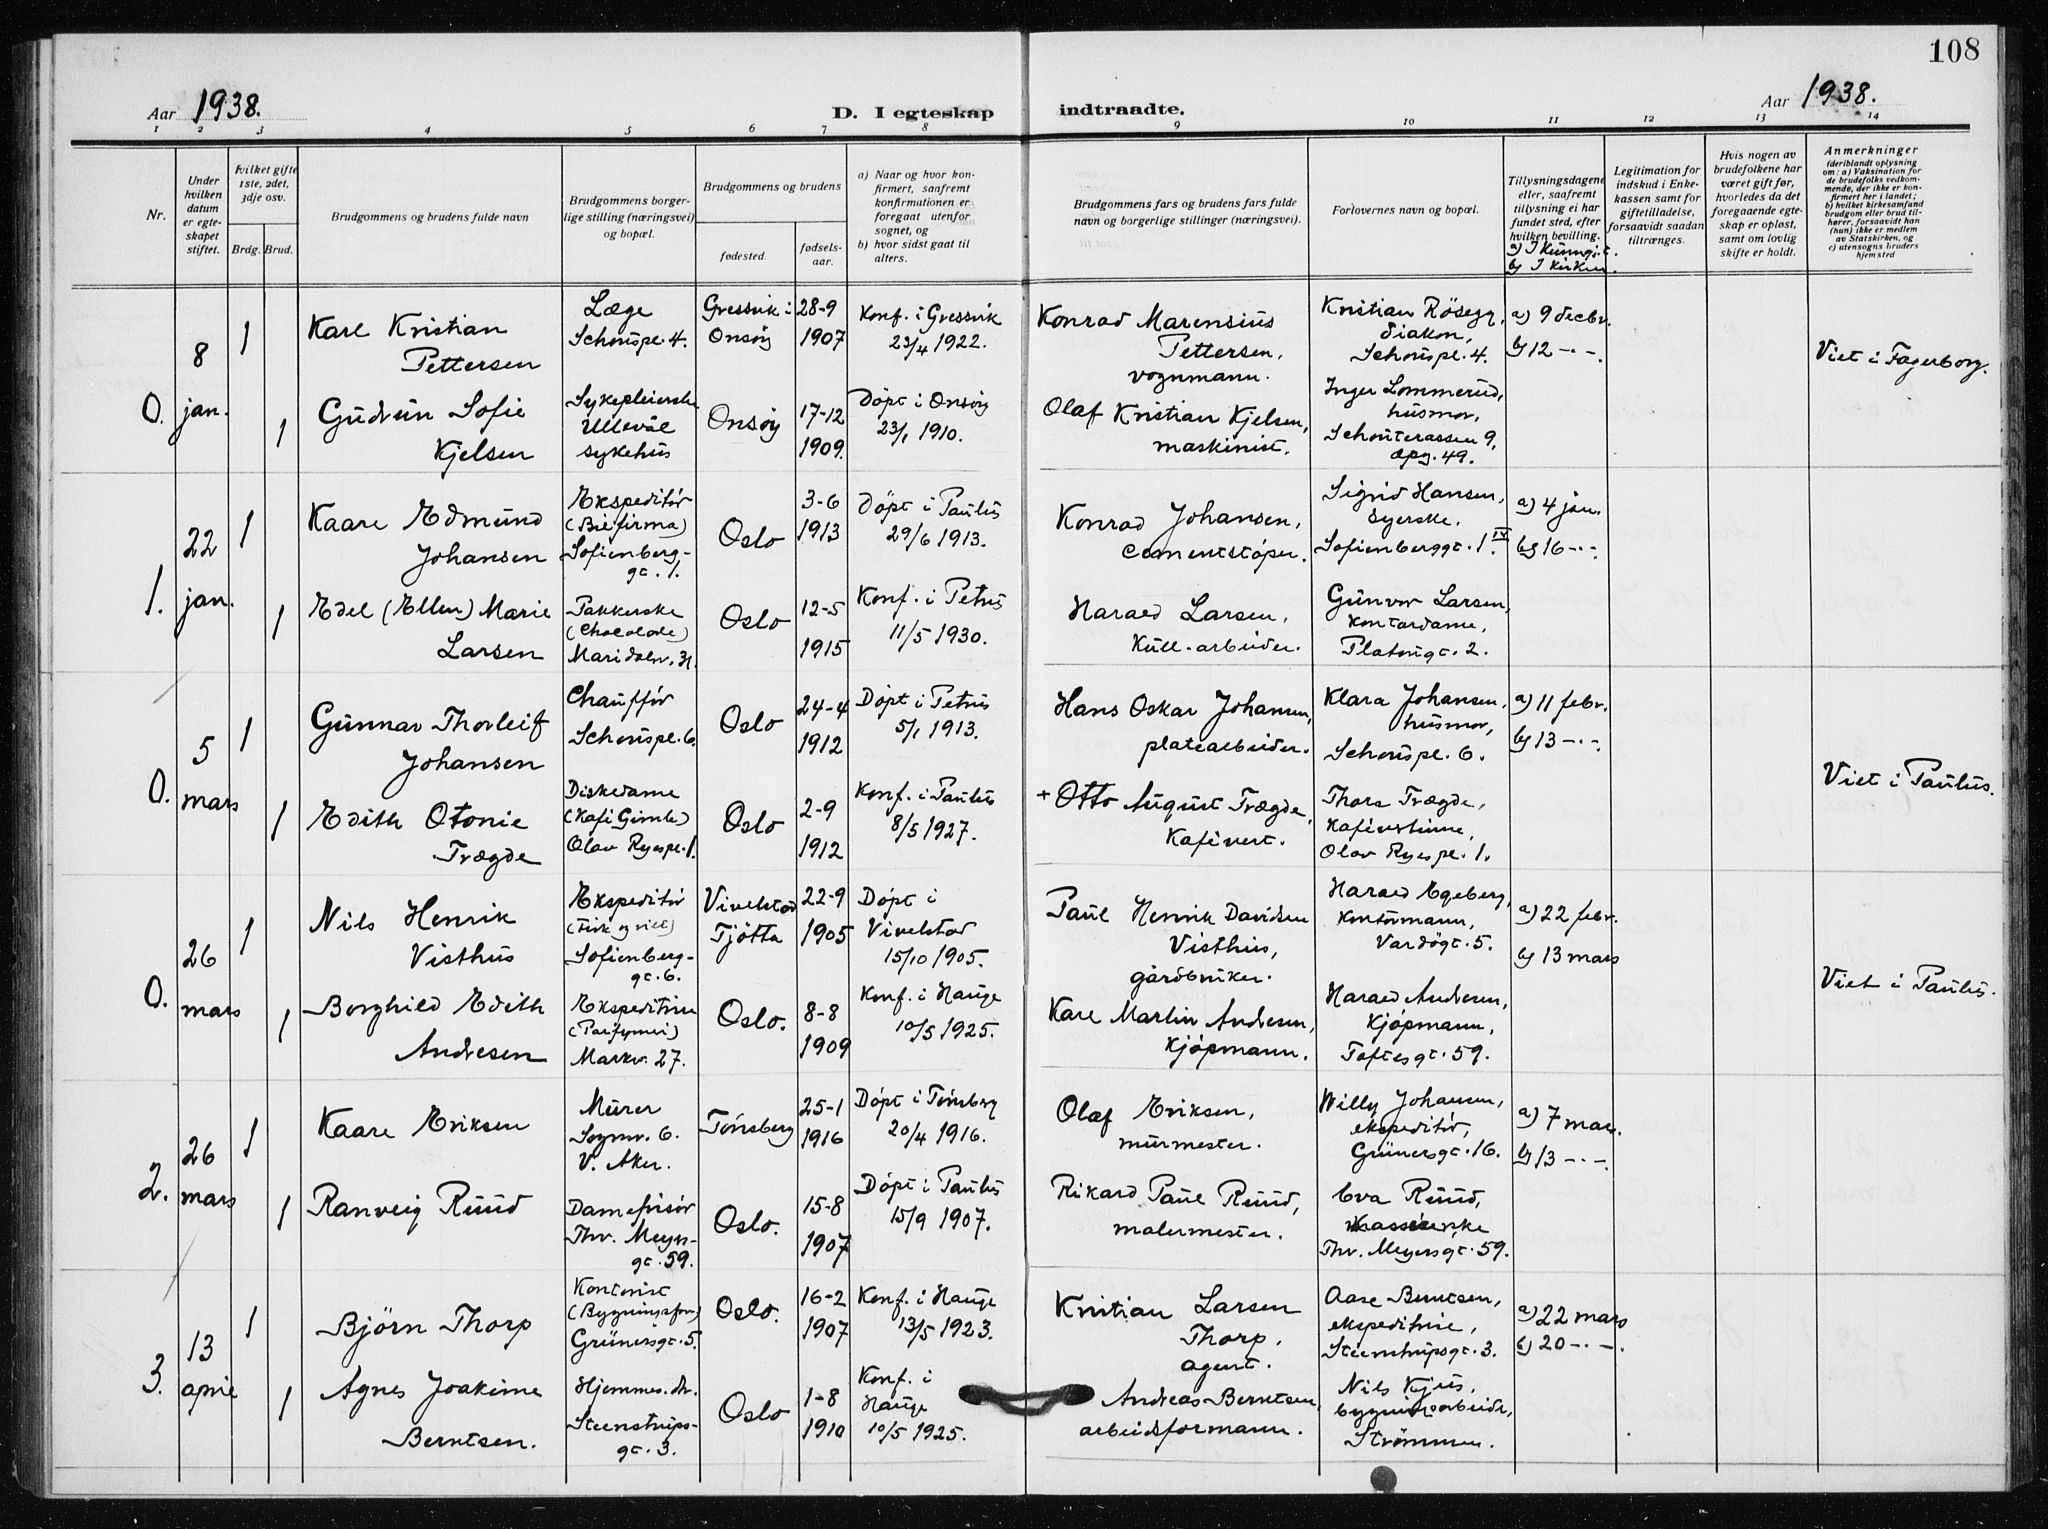 108
Aar 1938.
D. I egteskap indtraadte.
Aar 1938.
1 2 3 4 5 6 7 8 9 10 11 12 13 14
Nr.
Under
hvilken
datum
er egte-
skapet
stiftet.
Hvilket gifte
1ste, 2det,
3dje osv.
Brdg. Brud.
Brudgommens og brudens fulde navn
Brudgommens borger-
lige stilling (næringsvei)
og bopæl.
Brudgommens og brudens
fødested.
fødsels-
aar.
a) Naar og hvor kon-
firmert, saafremt
konfirmationen er
foregaat utenfor
sognet, og
b) hvor sidst gaat til
alters.
Brudgommens fars og brudens fars fulde
navn og borgerlige stillinger (næringsvei).
Forlovernes navn og bopæl.
Tillysningsdagene
eller, saafremt
tillysning ei har
fundet sted, efter
hvilken bevilling.
b) I kirken.
Legitimation for
indskud i Enke-
kassen samt for
giftetilladelse,
forsaavidt saadan
tiltrænges.
Hvis nogen av
brudefolkene har
været gift før,
hvorledes da det
foregaaende egte-
skap er opløst,
samt om lovlig
skifte er holdt.
Anmerkninger
(deriblandt oplysning
om: a) Vaksination for
de brudefolks vedkom-
mende, der ikke er kon-
firmert her i landet;
b) hvilket kirkesamfund
brudgom eller brud til-
hører, forsaavidt han
(hun) ikke er medlem
av Statskirken, og
c) utensogns bruders
hjemsted
0.
8
jan.
1
Kare Kristian
Pettersen
Læge
Schouspl. 4.
Gressvik i
Onsöy
28-9
1907
Konf. i Gressvik
23/4 1922.
Konrad Marensius
Pettersen,
vognmann.
Kristian Rösegg,
diakon,
Schouspl. 4.
a) 9 decbr.
b) 12 -·-.
Viet i Fagerborg.
1
Gudrun Sofie
Kjelsen
Sykepleierske
Ullevål
sykehus
Onsöy
17-12
1909.
Döpt i Onsöy
23/1 1910.
Olaf Kristian Kjelsen,
maskinist.
Inger Lommerud,
husmor,
Schouterassen 9,
opg. 49.
1.
22
jan.
1
Kaare Edmund
Johansen
Ekspeditör
Sofienberg-
gt. 1.
Oslo
3-6
1913
Döpt i Paulus
29/6 1913.
Konrad Johansen,
Cementstöper.
Sigrid Hansen,
syerske.
Sofienberggt. 1 IV.
a) 4 jan.
b) 16 -·-.
1
Edel (Ellen) Marie
Larsen
Pakkerske
(Chocolade)
Maridalsv. 31.
Oslo
12-5
1915
Konf. i Petrus
11/5 1930.
Harald Larsen,
Kull-arbeider.
Gunvor Larsen,
Kontordame,
Platougt. 2.
0.
5
mars
1
Gunnar Thorleif
Johansen
Chaufför
Schouspl. 6.
Oslo
24-4
1912
Döpt i Petrus
5/1 1913.
Hans Oskar Johansen,
platearbeider.
Klara Johansen,
husmor,
Schouspl. 6.
a) 11 febr.
b) 13 -·-.
Viet i Paulus.
1
Edith Otonie
Trægde
Diskedame
(Kafé Gimle)
Olav Ryespl. 1.
Oslo
2-9
1912
Konf. i Paulus
8/5 1927.
+ Otto August Trægde,
Kafévert.
Thora Trægde,
Kafévertinne,
Olav Ryespl. 1.
0.
26
mars
1
Nils Henrik
Visthus
Ekspeditör
(Fisk og vilt)
Sofienberg-
gt. 6.
Vivelstad
Tjötta
22-9
1905
Döpt i
Vivelstad
15/10 1905.
Paul Henrik Davidsen
Visthus,
gårdbruker.
Harald Egeberg,
Kontormann,
Vardögt. 5.
a) 22 febr.
b) 13 mars
Viet i Paulus.
1
Borghild Edith
Andresen
Ekspeditrise
(Parfymeri)
Markv. 27.
Oslo.
8-8
1909
Konf. i Hauge
10/5 1925.
Kare Martin Andresen,
Kjöpmann.
Harald Andresen,
Kjöpmann,
Toftesgt. 59.
2.
26
mars
1
Kaare Eriksen
Murer
Sognsv. 6.
V. Aker.
Tönsberg
25-1
1916
Döpt i Tönsberg
20/4 1916.
Olaf Eriksen,
murmester.
Willy Johansen,
ekspeditör,
Grünersgt. 16.
a) 7 mars.
b) 13 -·-.
1
Ranveig Ruud
Damefrisör
Thv. Meyers-
gt. 59.
Oslo.
15-8
1907
Döpt i Paulus
15/9 1907.
Rikard Paul Ruud,
malermester.
Eva Ruud,
Kassererske
Thv. Meyersgt. 59.
3.
13
april
1
Björn Thorp
Kontorist
(Bygningsforr.)
Grünersgt. 5.
Oslo.
16-2
1907
Konf. i Hauge
13/5 1923.
Kristian Larsen
Thorp,
agent.
Aase Berntsen,
ekspeditrise,
Steenstrupsgt. 3.
a) 22 mars
b) 20 -·-.
1
Agnes Joakime
Berntsen.
Hjemmev. dtr.
Steenstrups-
gt. 3.
Oslo
1-8
1910
Konf. i
Hauge
10/5 1925.
Andreas Berntsen,
arbeidsformann.
Nils Kjus,
bygningsarbeider,
Strömmen.